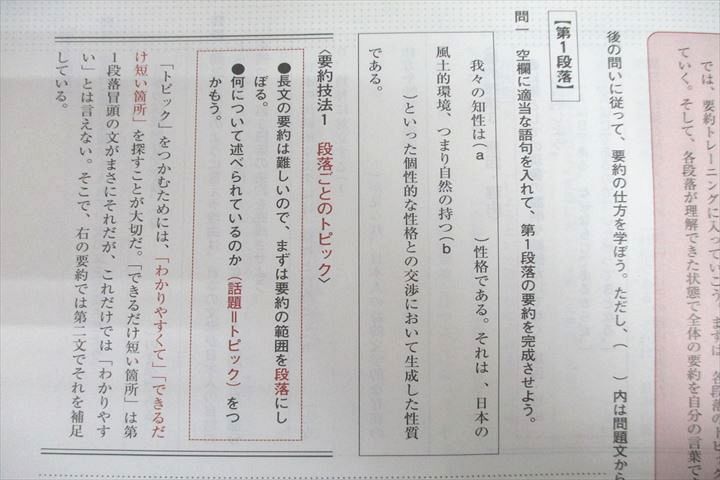 では、要約トレーニングに入っていこう。まずは、各段落のトピック
ていく。そして、各段落が理解できた状態で全体の要約を自分の言葉で
後の問いに従って、要約の仕方を学ぼう。ただし、（　　）内は問題文から
【第１段落】
問一　空欄に適当な語句を入れて、第１段落の要約を完成させよう。
我々の知性は（a　　　　　）性格である。それは、日本の
風土的環境、つまり自然の持つ（b
　　　）といった個性的な性格との交渉において生成した性質
である。
〈要約技法１　段落ごとのトピック〉
●長文の要約は難しいので、まずは要約の範囲を段落にし
ぼる。
●何について述べられているのか（話題＝トピック）をつ
かもう。
「トピック」をつかむためには、「わかりやすくて」「できるだ
け短い箇所」を探すことが大切だ。「できるだけ短い箇所」は第
１段落冒頭の文がまさにそれだが、これだけでは「わかりやす
い」とは言えない。そこで、右の要約では第二文でそれを補足
している。